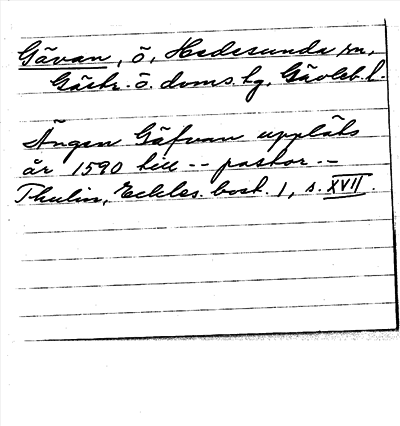 Gävan, ö, Hedesunda sn,
Gästr. ö. doms. hg, Gävleb. l.
Ängen Gäfvan uppläts
år 1590 till -- pastor --
Thulin, Eckles. bost. 1, s. XVII.